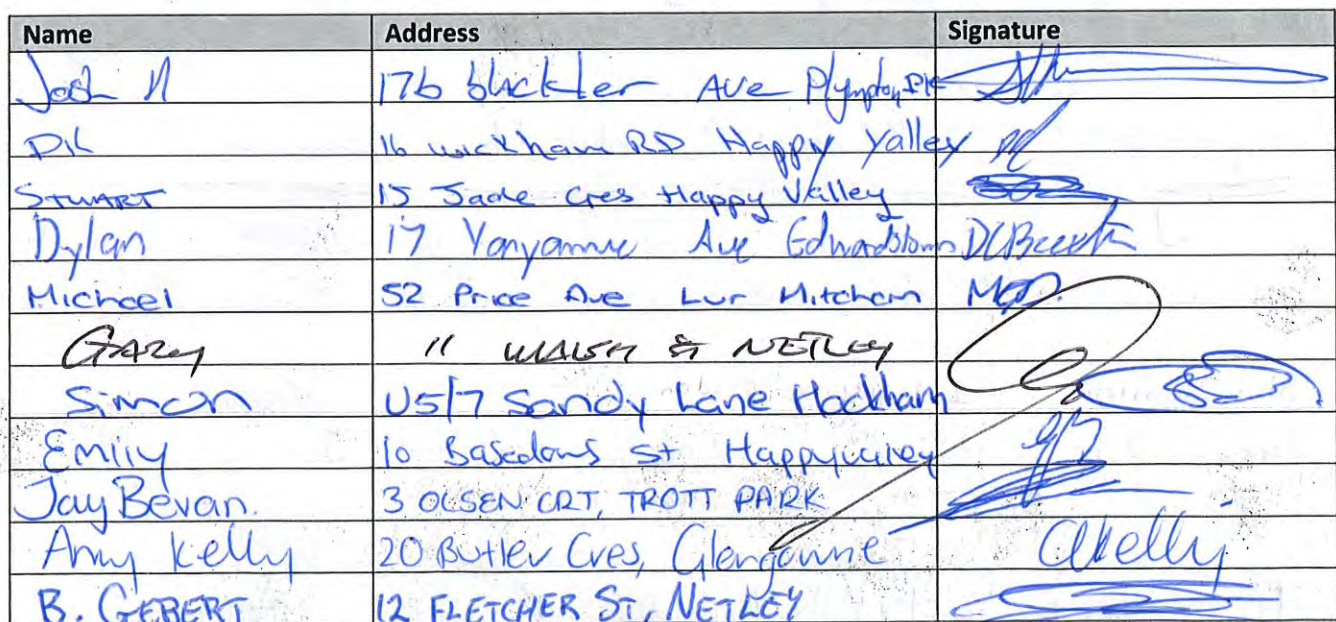 Name Address Signature
Josh N 17b Blackler Ave Plympton PK
Dik 16 Wickham RD Happy Valley
STUART 15 Jade Cres Happy Valley
Dylan 17 Ave Edwardstown
Michael 52 Price Ave Lwr Mitcham
GARY 11 WALSH St NETLEY
Simon U5/7 Sandy Lane Hackham
Emily 10 Basedows St Happy valley
Jay Bevan. 3 OLSEN CRT, TROTT PARK
Amy Kelly 20 Butler Cres, Glengowrie akelly
B. GEBERT 12 FLETCHER ST, NETLEY